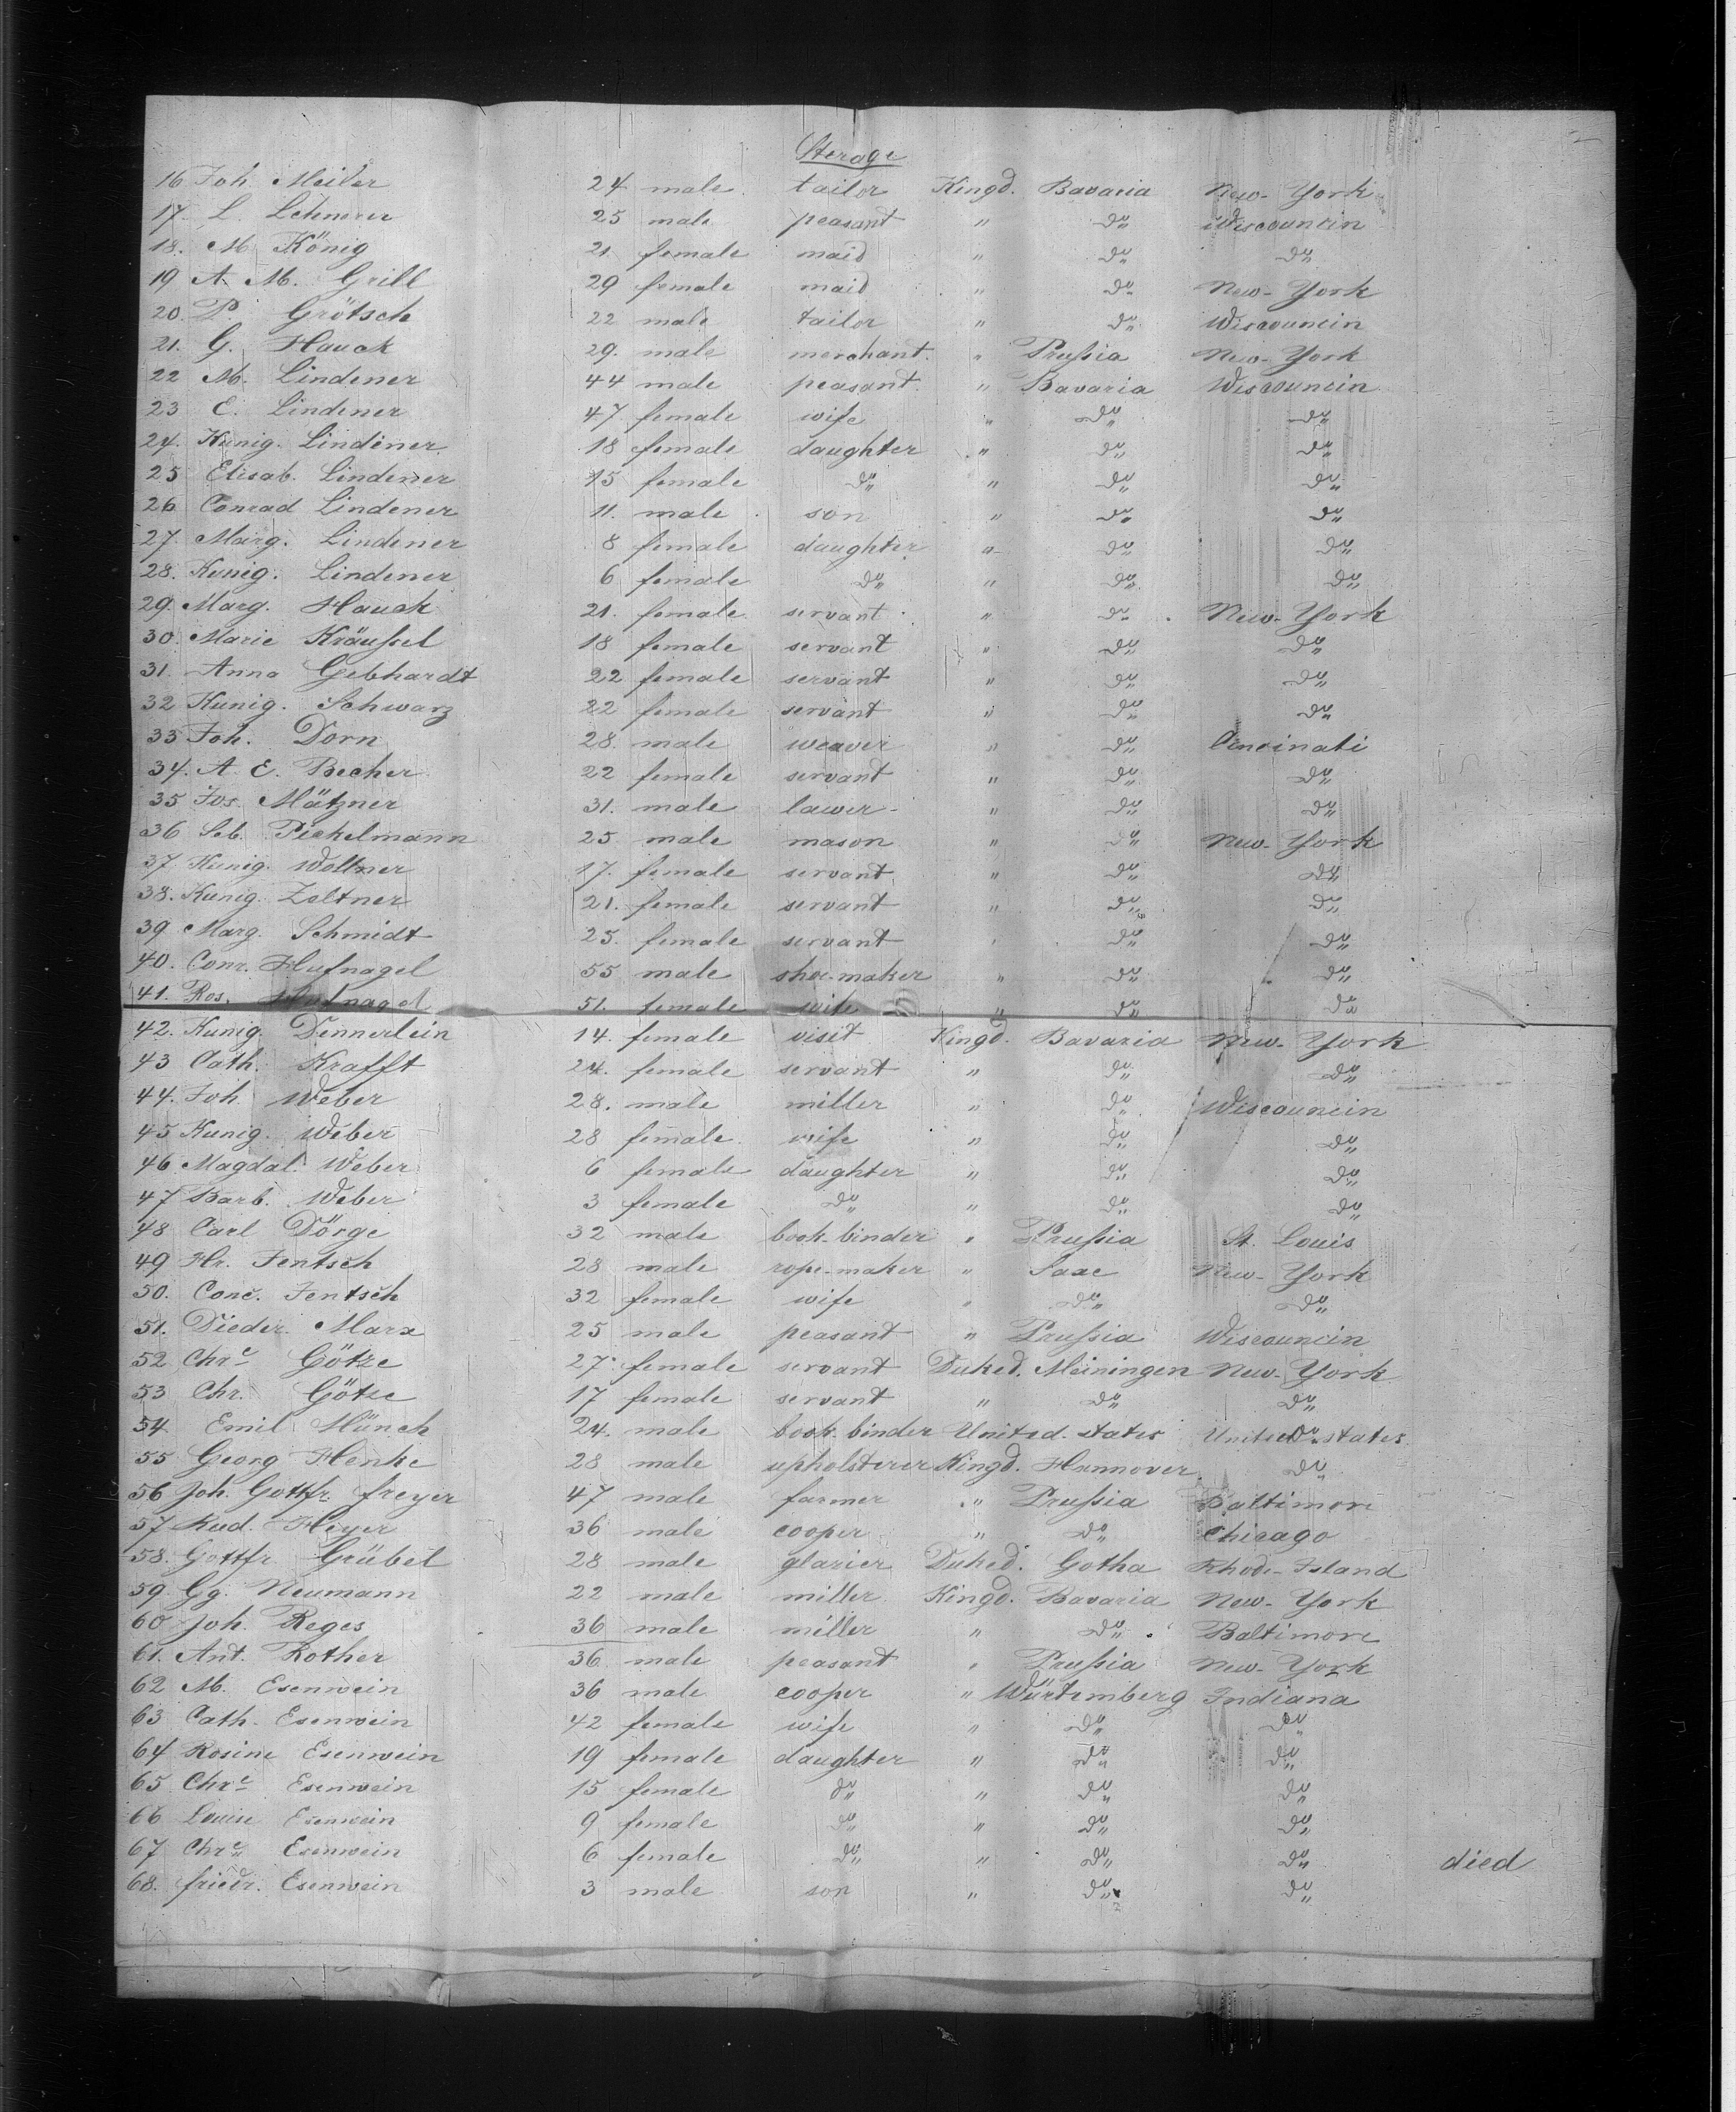 Sterage
16 Joh. Meiler 24 male tailor Kingd. Bavaria New-York
17. L. Lehnerer 25 male peasant " do Wiscouncin
18. M. König 21 female maid " do do
19 A. M. Grill 29 female maid " do New-York
20. P. Grötsch 22 male tailor " do Wiscouncin
21. G. Hauck 29. male merchant. " Prußia New-York
22 M. Lindener 44 male peasant " Bavaria Wiscouncin
23 E. Lindener 47 female wife " do do
24. Kunig. Lindener 18 female daughter " do do
25 Elisab. Lindener 15 female do " do do
26 Conrad Lindener 11. male son " do do
27. Marg. Lindener 8 female daughter " do do
28. Kunig. Lindener 6 female do " do do
29. Marg. Hauck 21. female servant " do New-York
30. Marie Kräußel 18 female servant " do do
31. Anna Gebhardt 22 female servant " do do
32 Kunig. Schwarz 22 female servant " do do
33 Joh. Dorn 28. male weaver " do Cincinati
34. A. E. Becher 22 female servant " do do
35 Jos. Mätzner 31. male lawer " do do
36 Seb. Pickelmann 25 male mason " do New-York
37. Kunig. Wollner 17. female servant " do do
38. Kunig. Zeltner 21. female servant " do do
39 Marg. Schmidt 25. female servant " do do
40. Conr. Hufnagel 55 male shoe-maker " do do
41. Ros. Hufnagel 51. female wife " do do
42. Kunig. Dennerlein 14. female visit Kingd. Bavaria New-York
43 Cath. Krafft 24. female servant " do do
44. Joh. Weber 28. male miller " do Wiscouncin
45 Kunig. Weber 28 female wife " do do
46 Magdal. Weber 6 female daughter " do do
47 Barb. Weber 3 female do " do do
48 Carl Dörge 32 male book-binder " Prußia St. Louis
49 Hr. Jentsch 28 male rope-maker " Saxe New-York
50. Conc. Jentsch 32 female wife " do do
51. Dieder. Marx 25 male peasant " Prußia Wiscouncin
52 Chre Götze 27. female servant Duked. Meiningen New-York
53 Chr. Götze 17 female servant " do do
54 Emil Münch 24. male book-binder United-states United-states
55 Georg Henke 28 male upholsterer Kingd. Hannover do
56 Joh. Gottfr. Freyer 47 male farmer " Prußia Baltimore
57 Rud. Heyer 36 male cooper " do Chicago
58. Gottfr. Grübel 28 male glazier Duked. Gotha Rhode-Island
59. Gg. Neumann 22 male miller Kingd. Bavaria New-York
60 Joh. Reges 36 male miller " do Baltimore
61. Ant. Rother 36 male peasant " Prußia New-York
62 M. Esenwein 36 male cooper " Würtemberg Indiana
63 Cath. Esenwein 42 female wife " do do
64 Rosine Esenwein 19 female daughter " do do
65 Chre Esenwein 15 female do " do do
66 Louise Esenwein 9 female do " do do
67 Chre Esenwein 6 female do " do do died
68. Friedr. Esenwein 3 male son " do do